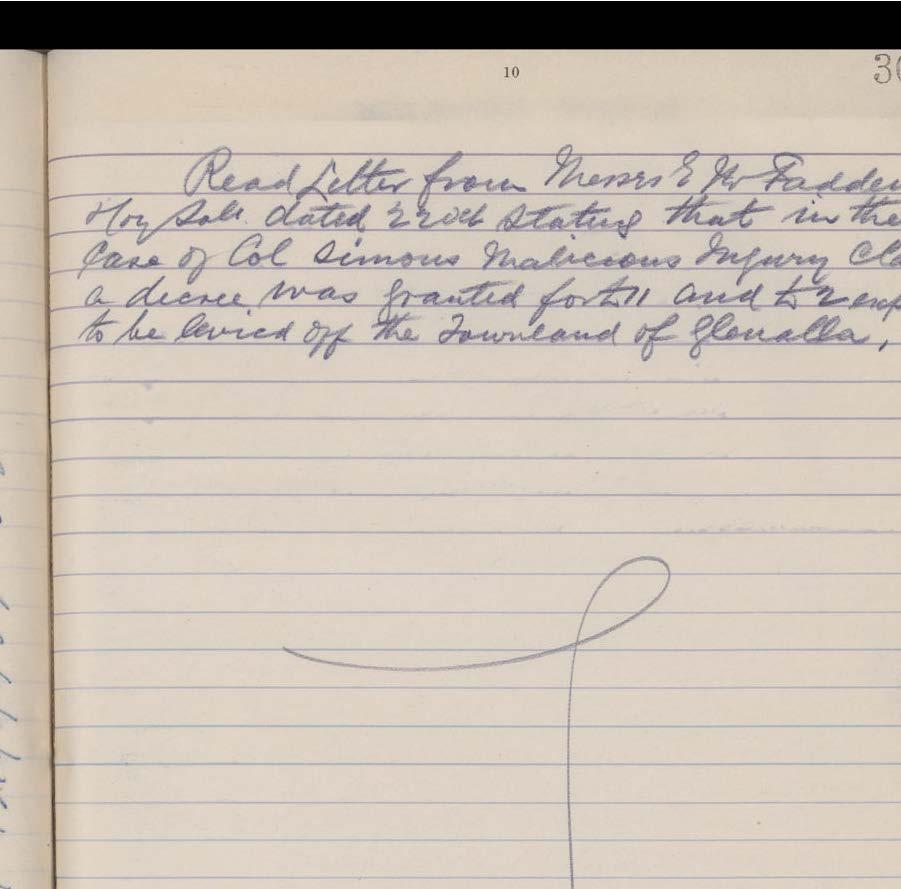 10
30
Read Letter from Messrs E McFadden
Hoy Solr. dated 22nd Stating that in the
Case of Col Simons Malicious Injury Cla
a decree was granted for £11 and £2 exp
to be levied off the Townland of Glenalla,